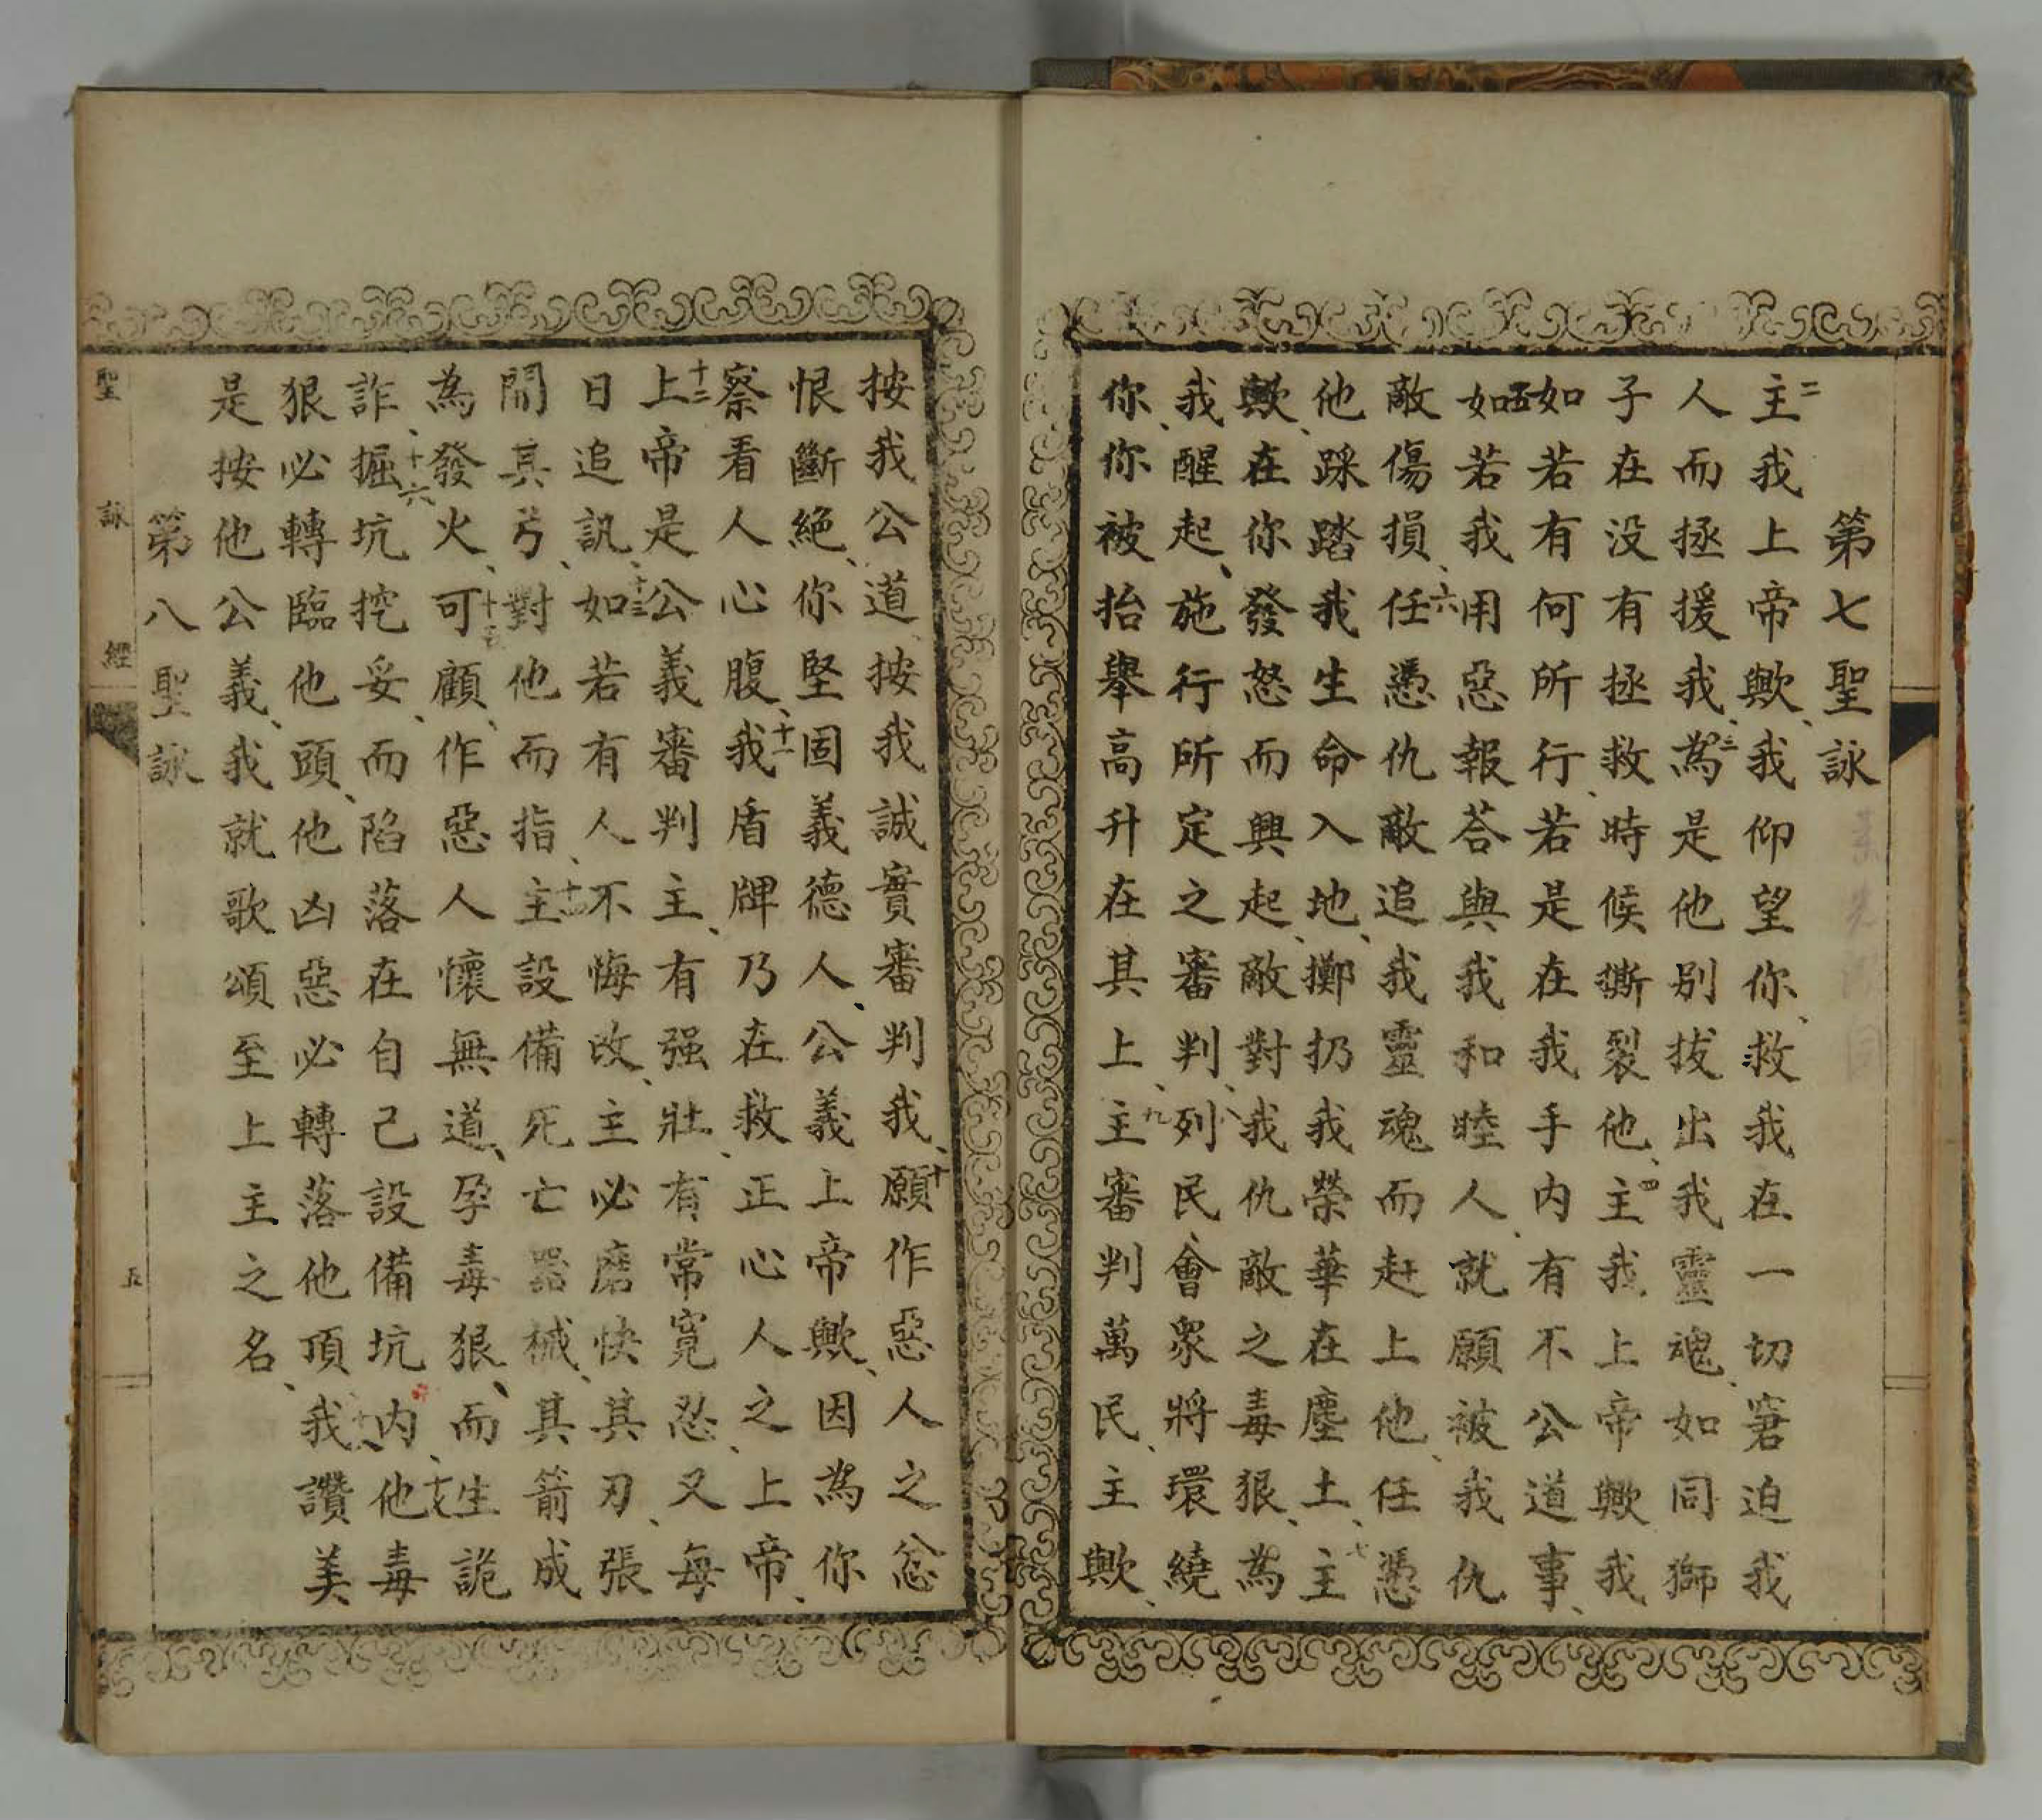 第七聖詠
二主我上帝歟、我仰望你、救我在一切窘迫我
人而拯援我、三為是他別拔出我靈魂、如同獅
子在没有拯救時候撕裂他、四主我上帝歟我
如若有何所行、若是在我手內有不公道事、
五如若我用惡報荅與我和睦人、就願被我仇
敵傷損、六任憑仇敵追我靈魂而赶上他、任憑
他踩踏我生命入地、擲扔我榮華在塵土、七主
歟、在你發怒而興起、敵對我仇敵之毒狠、為
我醒起、施行所定之審判、八列民會衆將環繞
你、你被抬舉高升在其上、九主審判萬民、主歟、
按我公道、按我誠實審判我、十願作惡人之忿
恨斷絕、你堅固義德人、公義上帝歟、因為你
察看人心腹、十一我盾牌乃在救正心人之上帝、
十二上帝是公義審判主、有强壯、有常寬忍、又每
日追訊、十三如若有人不悔改、主必磨快其刃、張
開其弓、對他而指、十四主設備死亡器械、其箭成
為發火、十五可顧、作惡人懷無道、孕毒狠、而生詭
詐、十六掘坑挖妥、而陷落在自己設備坑內、十七他毒
狠必轉臨他頭、他凶惡必轉落他頂、我讚美
是按他公義、我就歌頌至上主之名、
第八聖詠
聖詠經
五